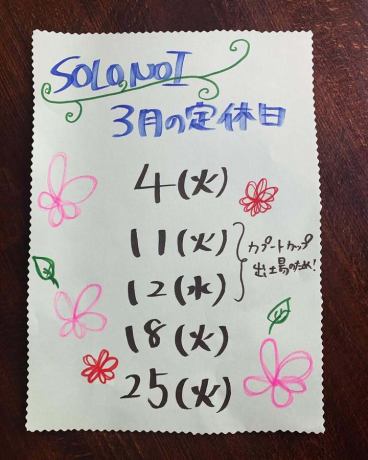 SOLO NOI
3月の定休日
4(火)
11(火)
12(水)
カプートカップ
出場のため!
18(火)
25(火)